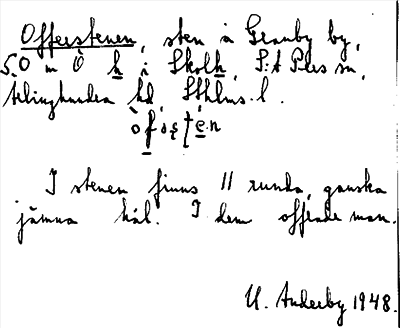 Offerstenen, sten i Granby by,
50 m Ö h i Skolh, S:t Pers sn,
tilinghundra hd, Sthlms l.
I stenen finns 11 runda, ganska
jämna hål. I dem offrade man.
U. Anderby 1948.